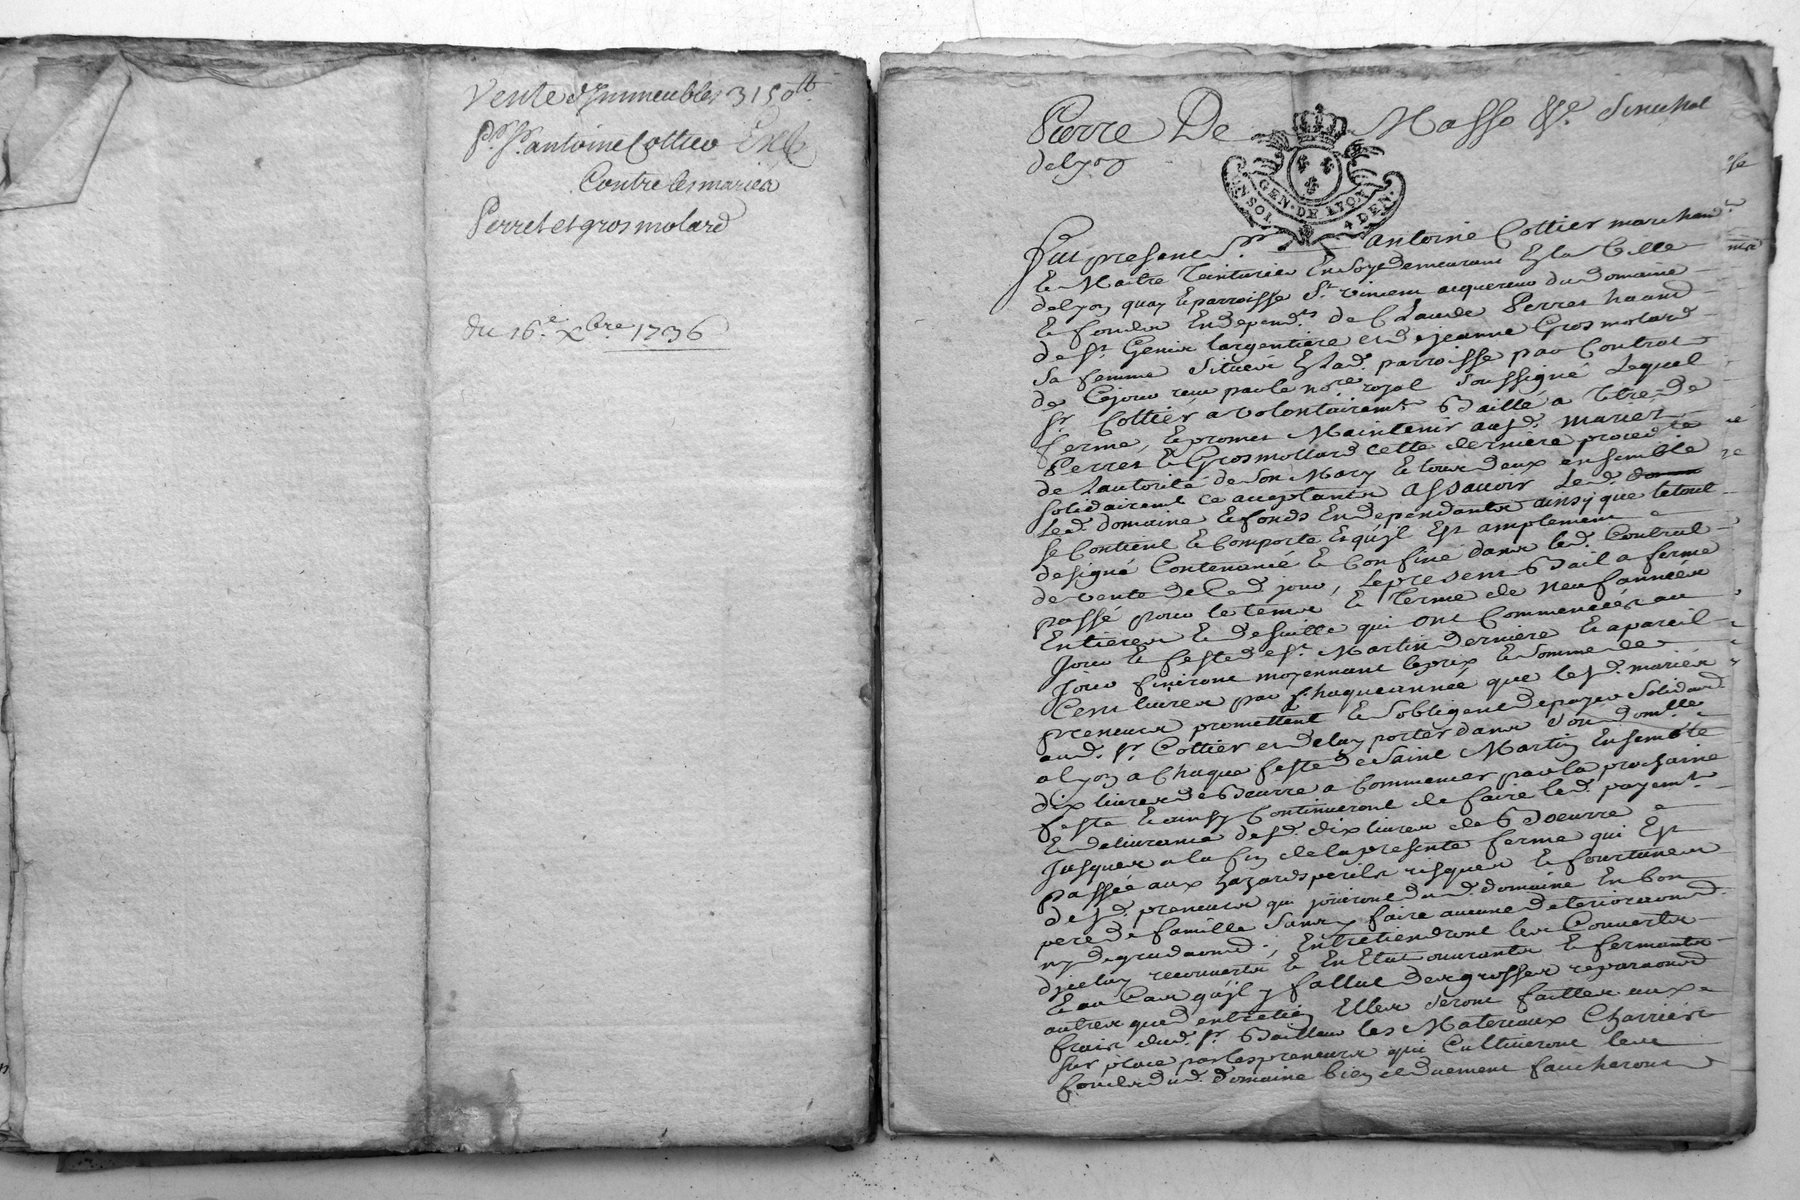 Vente d'Immeubles 3150lt
Pr. Sr. antoine Cottier
Contre les mariés
Perret et grosmolard
du 16e. Xbre 1736
Pierre De Masso &r. Senechal
de Lyon
GEN. DE LYON
4 DEN.
Fut present Sr. Antoine Cottier marchand
& Maitre Teinturier En Soye demeurant En la Ville
de Lyon quay & parroisse St. vincent acquereur du domaine
& fonds En dependts. de Claude Perret
de St. Genis largentiere et de jeanne Grosmolard
Sa femme Situés En lad. parroisse par Contrat
de Cejour receu par le nore. royal Soussigné Lequel
Sr. Cottier a volontairemt. Baillé a titre de
ferme, & promet Maintenir ausd. mariés
Perret & Grosmollard cette derniere procedte
de Lautorité de Son Mary & tous deux ensemble
Solidairemt ce acceptants assavoir Led.
Led. domaine & fonds En dependants ainsy que letout
Se Contient & Comporte & quil Est amplement
designé Contenancé & Confiné dans led. Contrat
de vente de Ced jour, Le present Bail a ferme
passé pour le tems & Terme de neuf années
Entieres & de suitte qui ont Commencées au
Jour & feste de St. Martin derniere & apareil
Jour finiront moyennant leprix & Somme de
Cent livres par Chaque année que lesd. mariés
preneurs promettent & Sobligent de payer Solidairt
aud. Sr. Cottier et de luy porter dans Son domlle
a Lyon a Chaque feste de Saint Martin Ensemble
dix livres de Beurre a Commencer par la prochaine
feste & ainsy Continueront de faire led. payemt.
& delivrance desd. dix livres de Boeurre
Jusques a la fin de la presente ferme qui Est
Passée aux hazards perils risques & fourtunes
desd. preneurs qui joüiront dud. domaine En bon
pere de famille Sans y faire aucune deterioraond.
ny degradaond; Entretiendront les Couverts
diceluy recouverts & En Etat ouvrants & fermants
& au Cas quil y fallut des grosses reparaons
autres que dentretien Elles Seront faittes aux
frais dud. Sr. Bailleur les Materiaux Charriés
Sur place par les preneurs qui Cultiveront les
fonds dud. domaine bien et duement faucheront